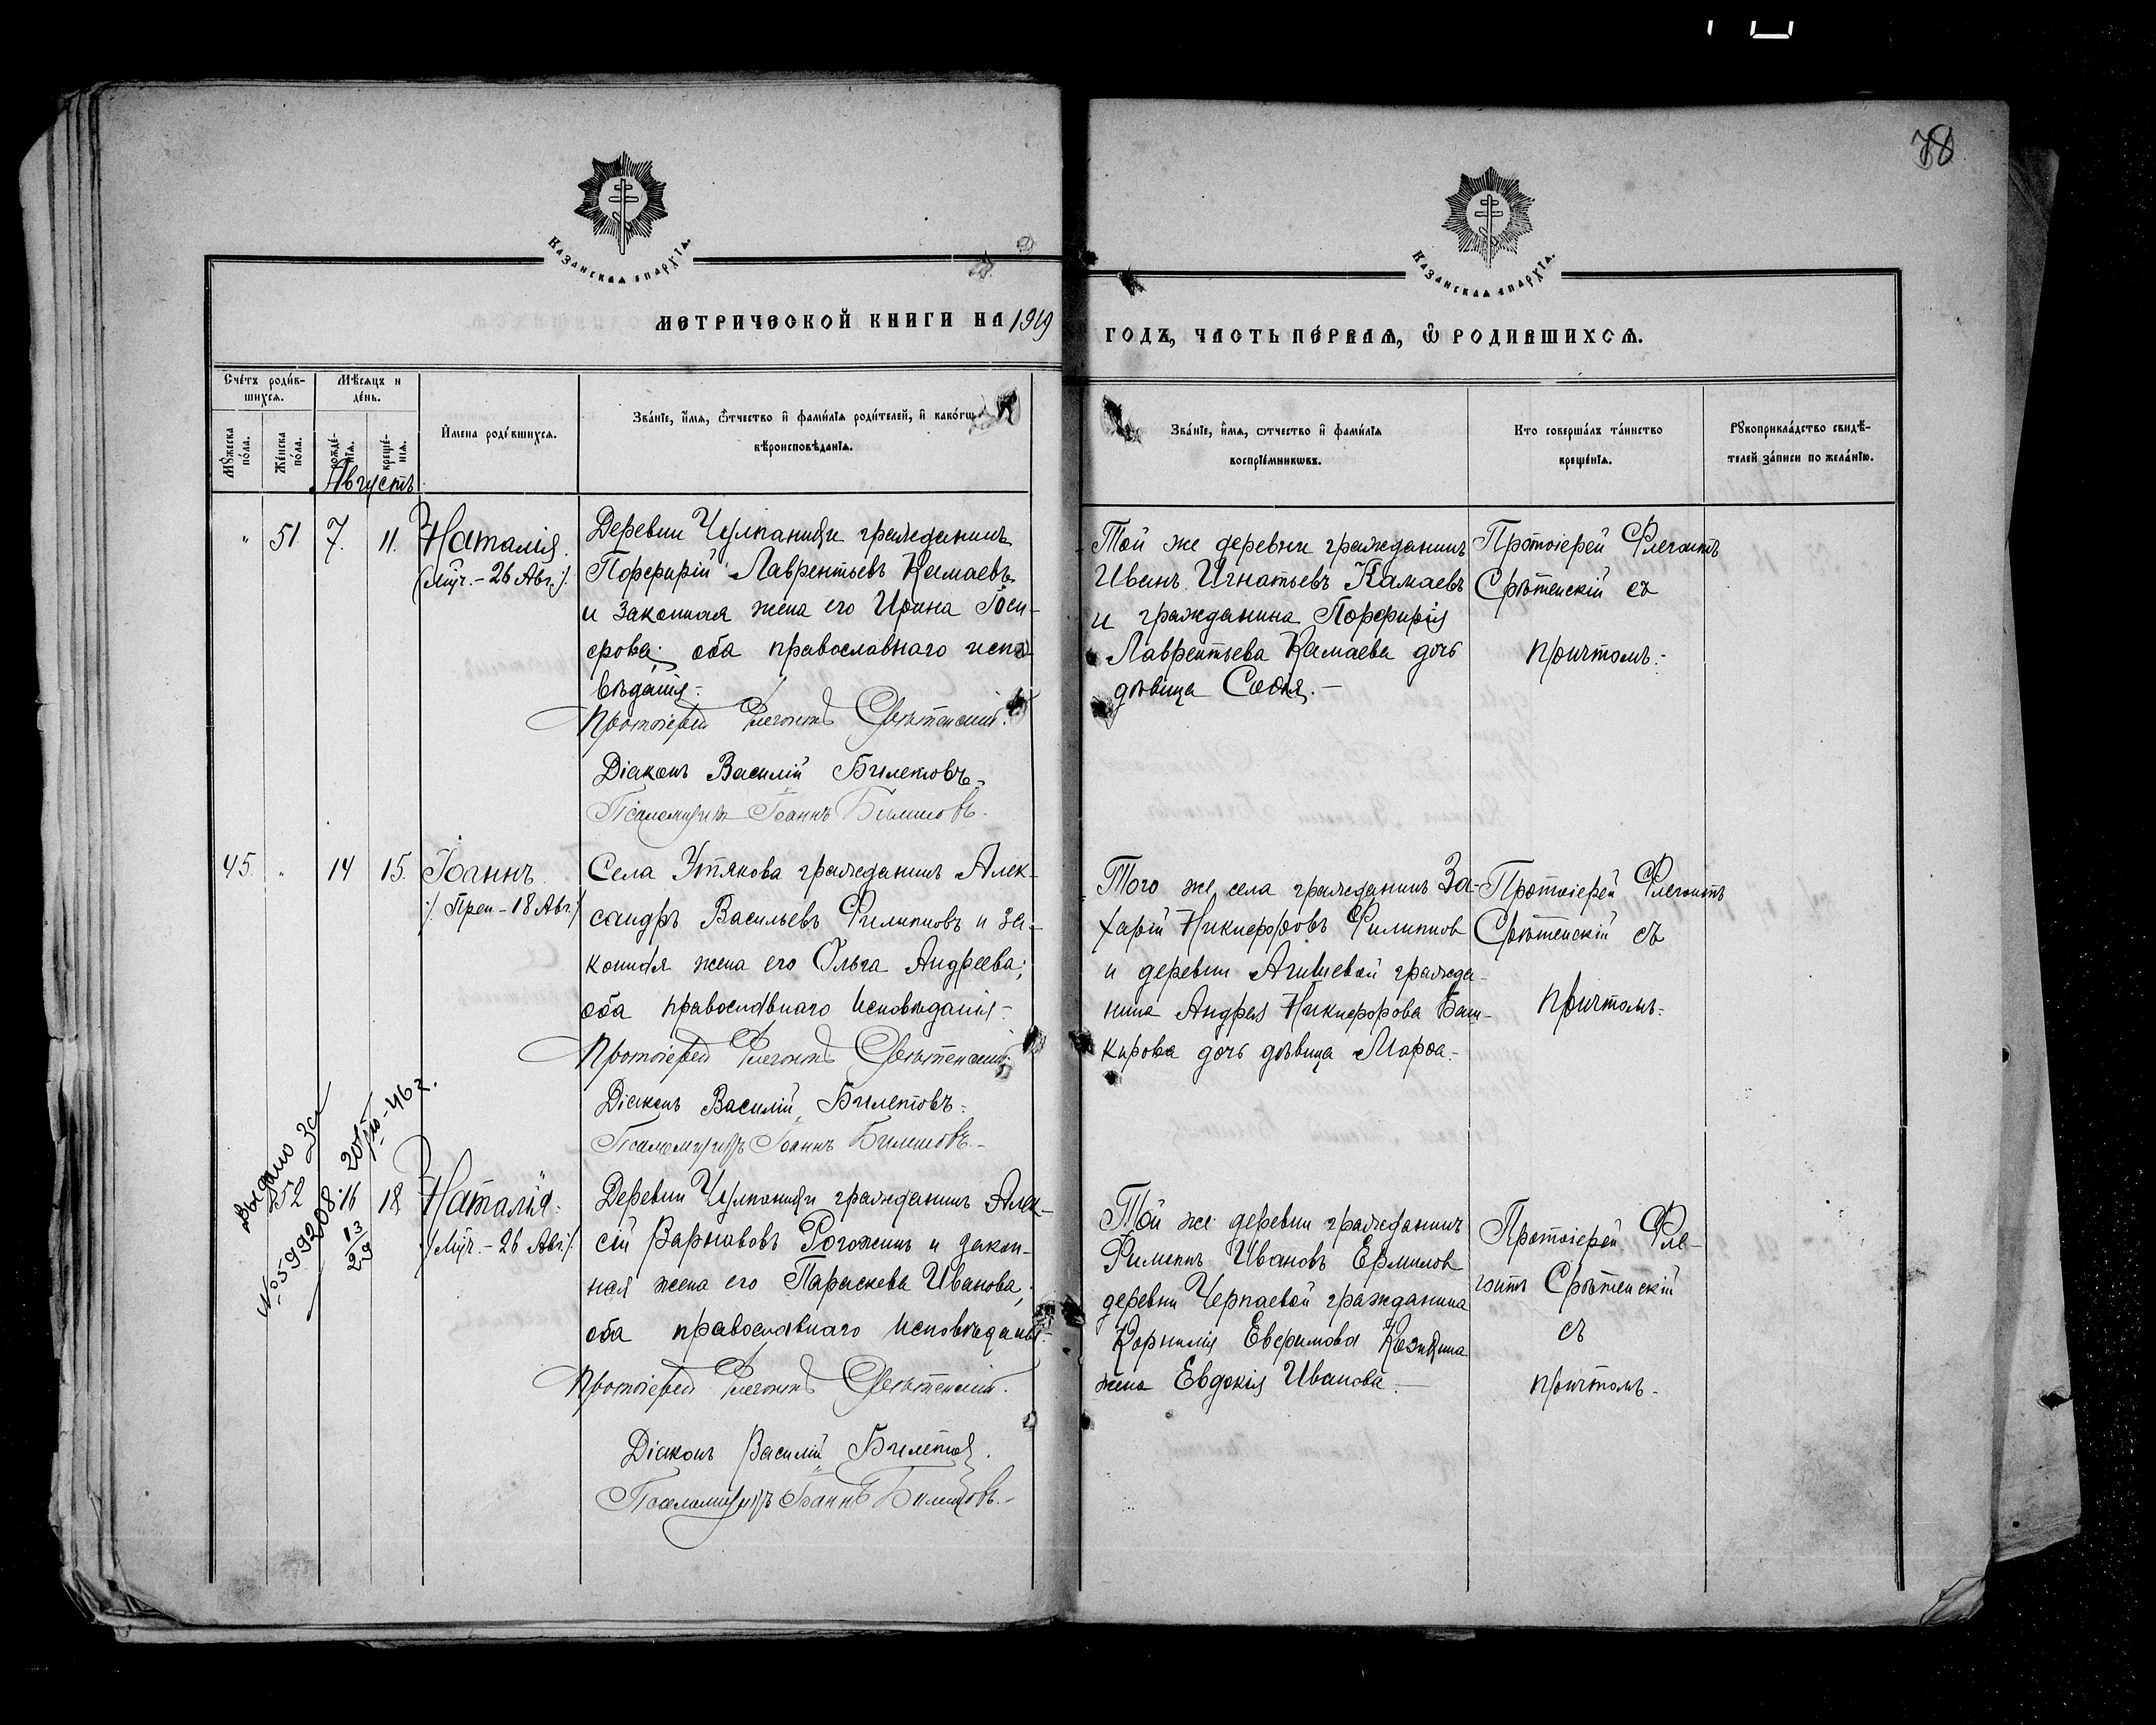 78
Казанская епархїѧ.
Казанская епархїѧ.
МЕТРИЧЕСКОЙ КНИГИ НА 1919
ГОДЪ, ЧАСТЬ ПЕ́РВАѦ, Ѿ РОДИВШИХСѦ.
Сче́тъ роди́в-
шихсѧ.
Мѣ́сѧцъ и
де́нь.
Мꙋ́жеска
по́ла.
Же́нска
по́ла.
рожде́-
нїѧ.
креще́-
нїѧ.
И҆мена роди́вшихсѧ.
Зва́нїе, и҆́мѧ, ѻ҆́тчество и҆ фами́лїѧ роди́телей, и҆ како́гѡ
вѣроисповѣ́данїѧ.
Зва́нїе, и҆́мѧ, ѻ҆́тчество и҆ фами́лїѧ
воспрїе́мникѡвъ.
Кто соверша́лъ та́инство
креще́нїѧ.
Рꙋкоприкла́дство свидѣ́-
телей за́писи по жела́нїю.
Августъ
" 51. 7. 11. Наталія.
(Муч. – 26 Авг.)
Деревни гражданинъ
Порфирій Лаврентьевъ Камаевъ
и законная жена его Ирина Іоси-
фова; оба православнаго испо-
вѣданія.
Протоіерей Флегонтъ Срѣтенскій.
Діаконъ Василій Билетовъ.
Псаломщикъ Іоаннъ
Той же деревни гражданинъ
Иванъ Игнатьевъ Камаевъ
и гражданина Порфирія
Лаврентьева Камаева дочь
дѣвица Софія. –
Протоіерей Флегонтъ
Срѣтенскій съ
причтомъ.
45. " 14 15. Іоаннъ
/. Преп – 18 Авг./
Села Утякова гражданинъ Алек-
сандръ Васильевъ Филипповъ и за-
конная жена его Ольга Андреева;
оба православнаго исповѣданія –
Протоіерей Флегонтъ Срѣтенскій.
Діаконъ Василій Билетовъ.
Псаломщикъ Іоаннъ
Того же села гражданинъ За-
харій Никифоровъ Филиппов
и деревни гражда-
нина Андрея Никифорова Баш-
кирова дочь дѣвица Марѳа. –
Протоіерей Флегонтъ
Срѣтенскій съ
причтомъ.
Выдано
№ 599208
13
29
52 16 18 Наталія.
/Муч. – 26 Авг./.
Деревни гражданинъ Алек-
сѣй Варнавовъ Рогожинъ и закон-
ная жена его Параскева Иванова,
оба православнаго исповѣданія.
Протоіерей Флегонтъ Срѣтенскій.
Діаконъ Василій Билетов.
Псаломщикъ Іоаннъ
Той же деревни гражданинъ
Филиппъ Ивановъ Ермилов
деревни гражданина
Корнилія Евфимова
жена Евдокія Иванова. –
Протоіерей Фле-
гонтъ Срѣтенскій
съ
причтомъ.